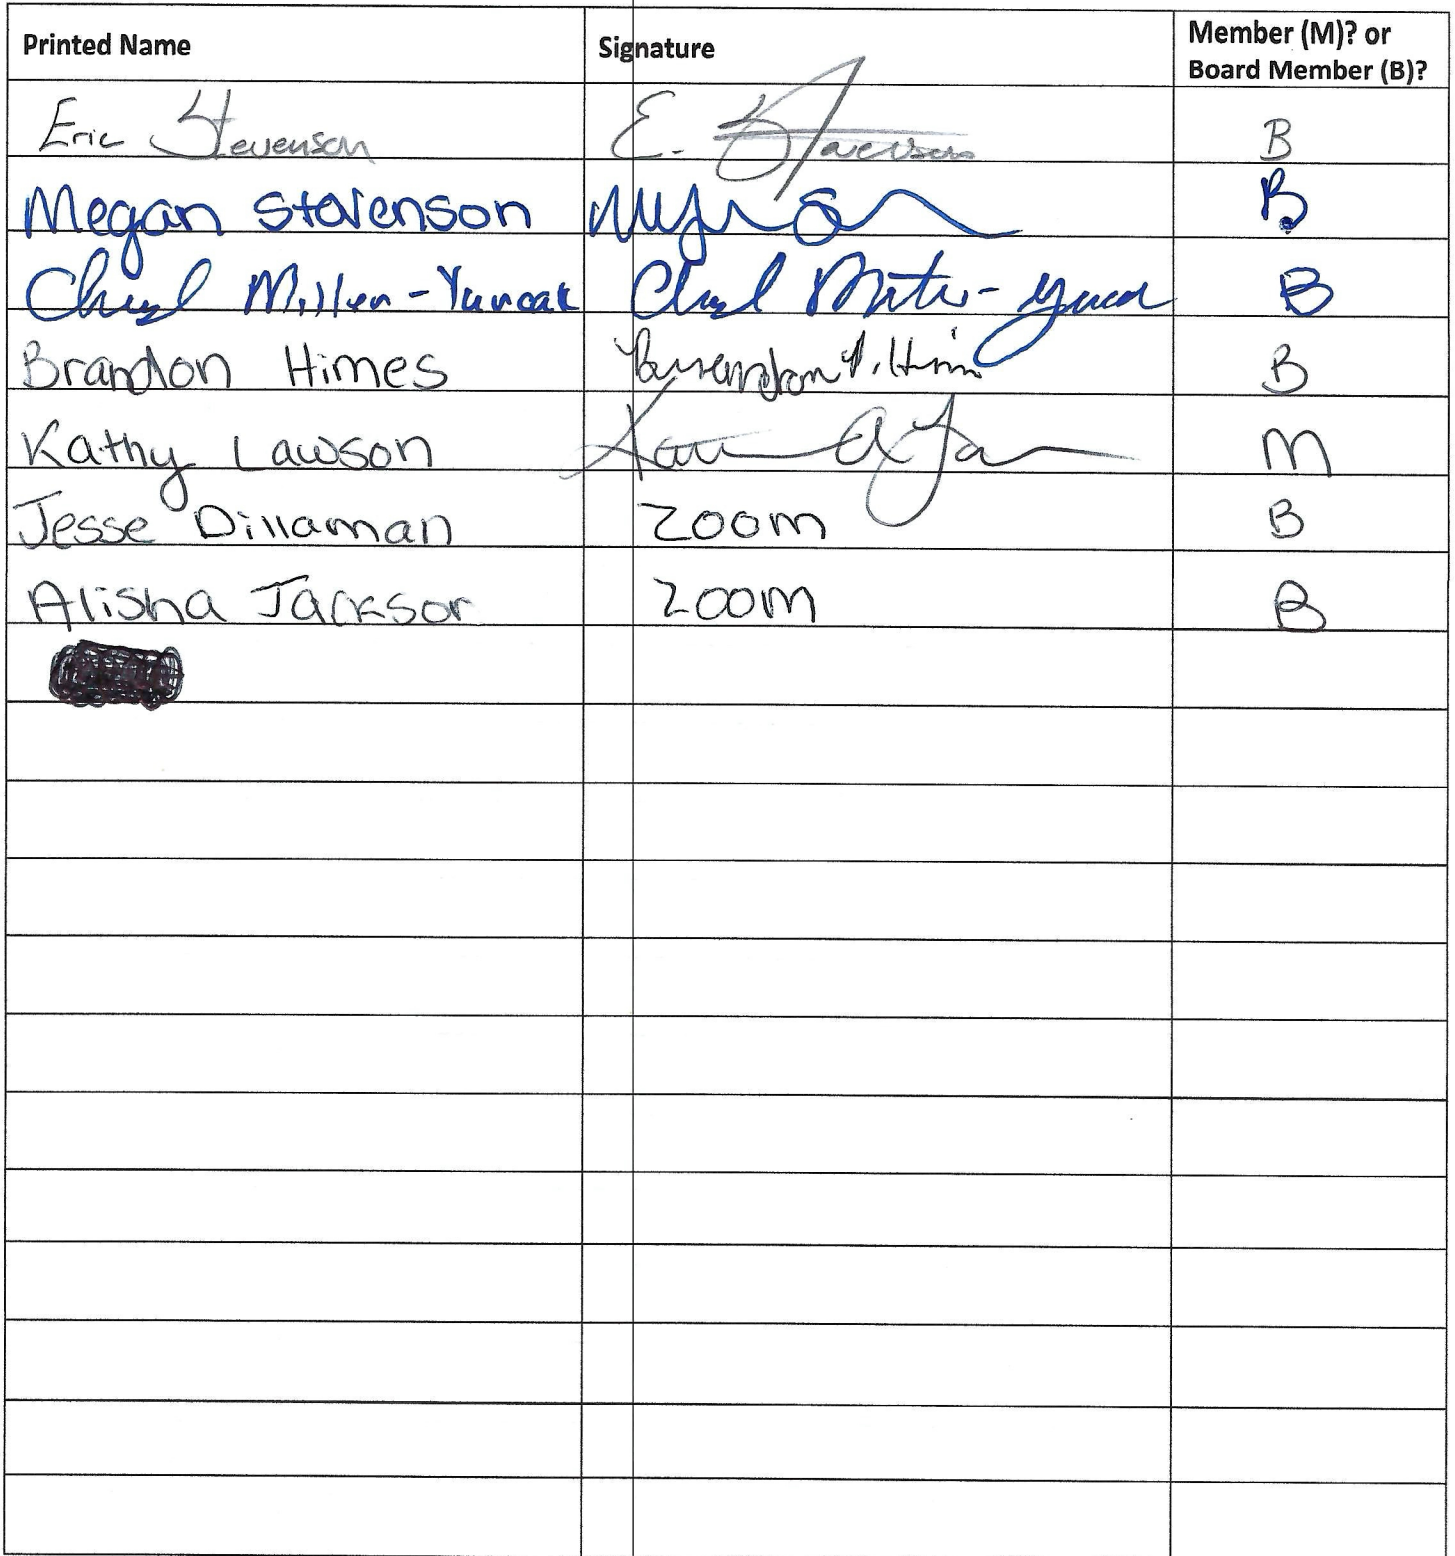 Printed Name Signature Member (M)? or
Board Member (B)?
Eric Stevenson E. Stevenson B
Megan Stevenson B
Cheryl Miller-Yuncak Cheryl B
Brandon Himes Brandon B
Kathy Lawson M
Jesse Dillaman Zoom B
Alisha Jackson Zoom B